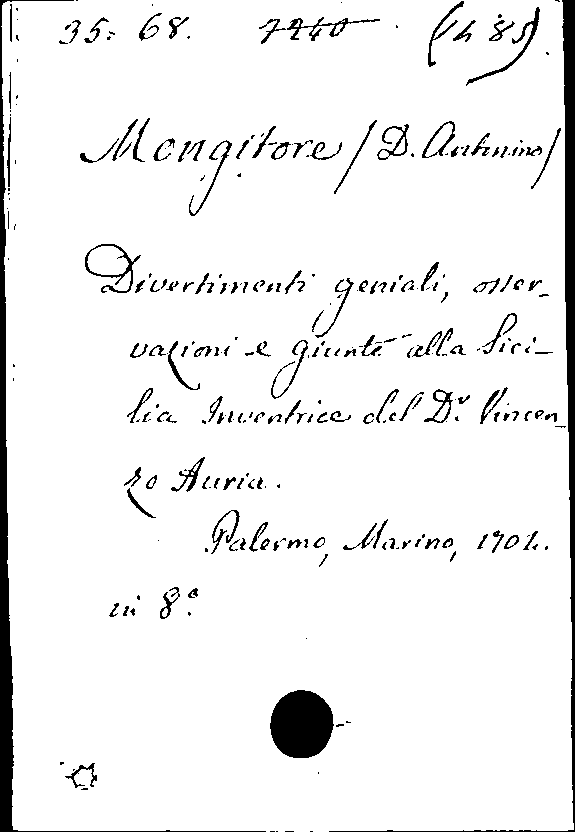 35. 68. 7240 (1485).
Mongitore / D. Antonino /
Divertimenti geniali, osser-
vazioni e giunte alla Sici-
lia Inventrice del Dr. Vincen-
zo Auria.
Palermo, Marino, 1704.
in 8.°